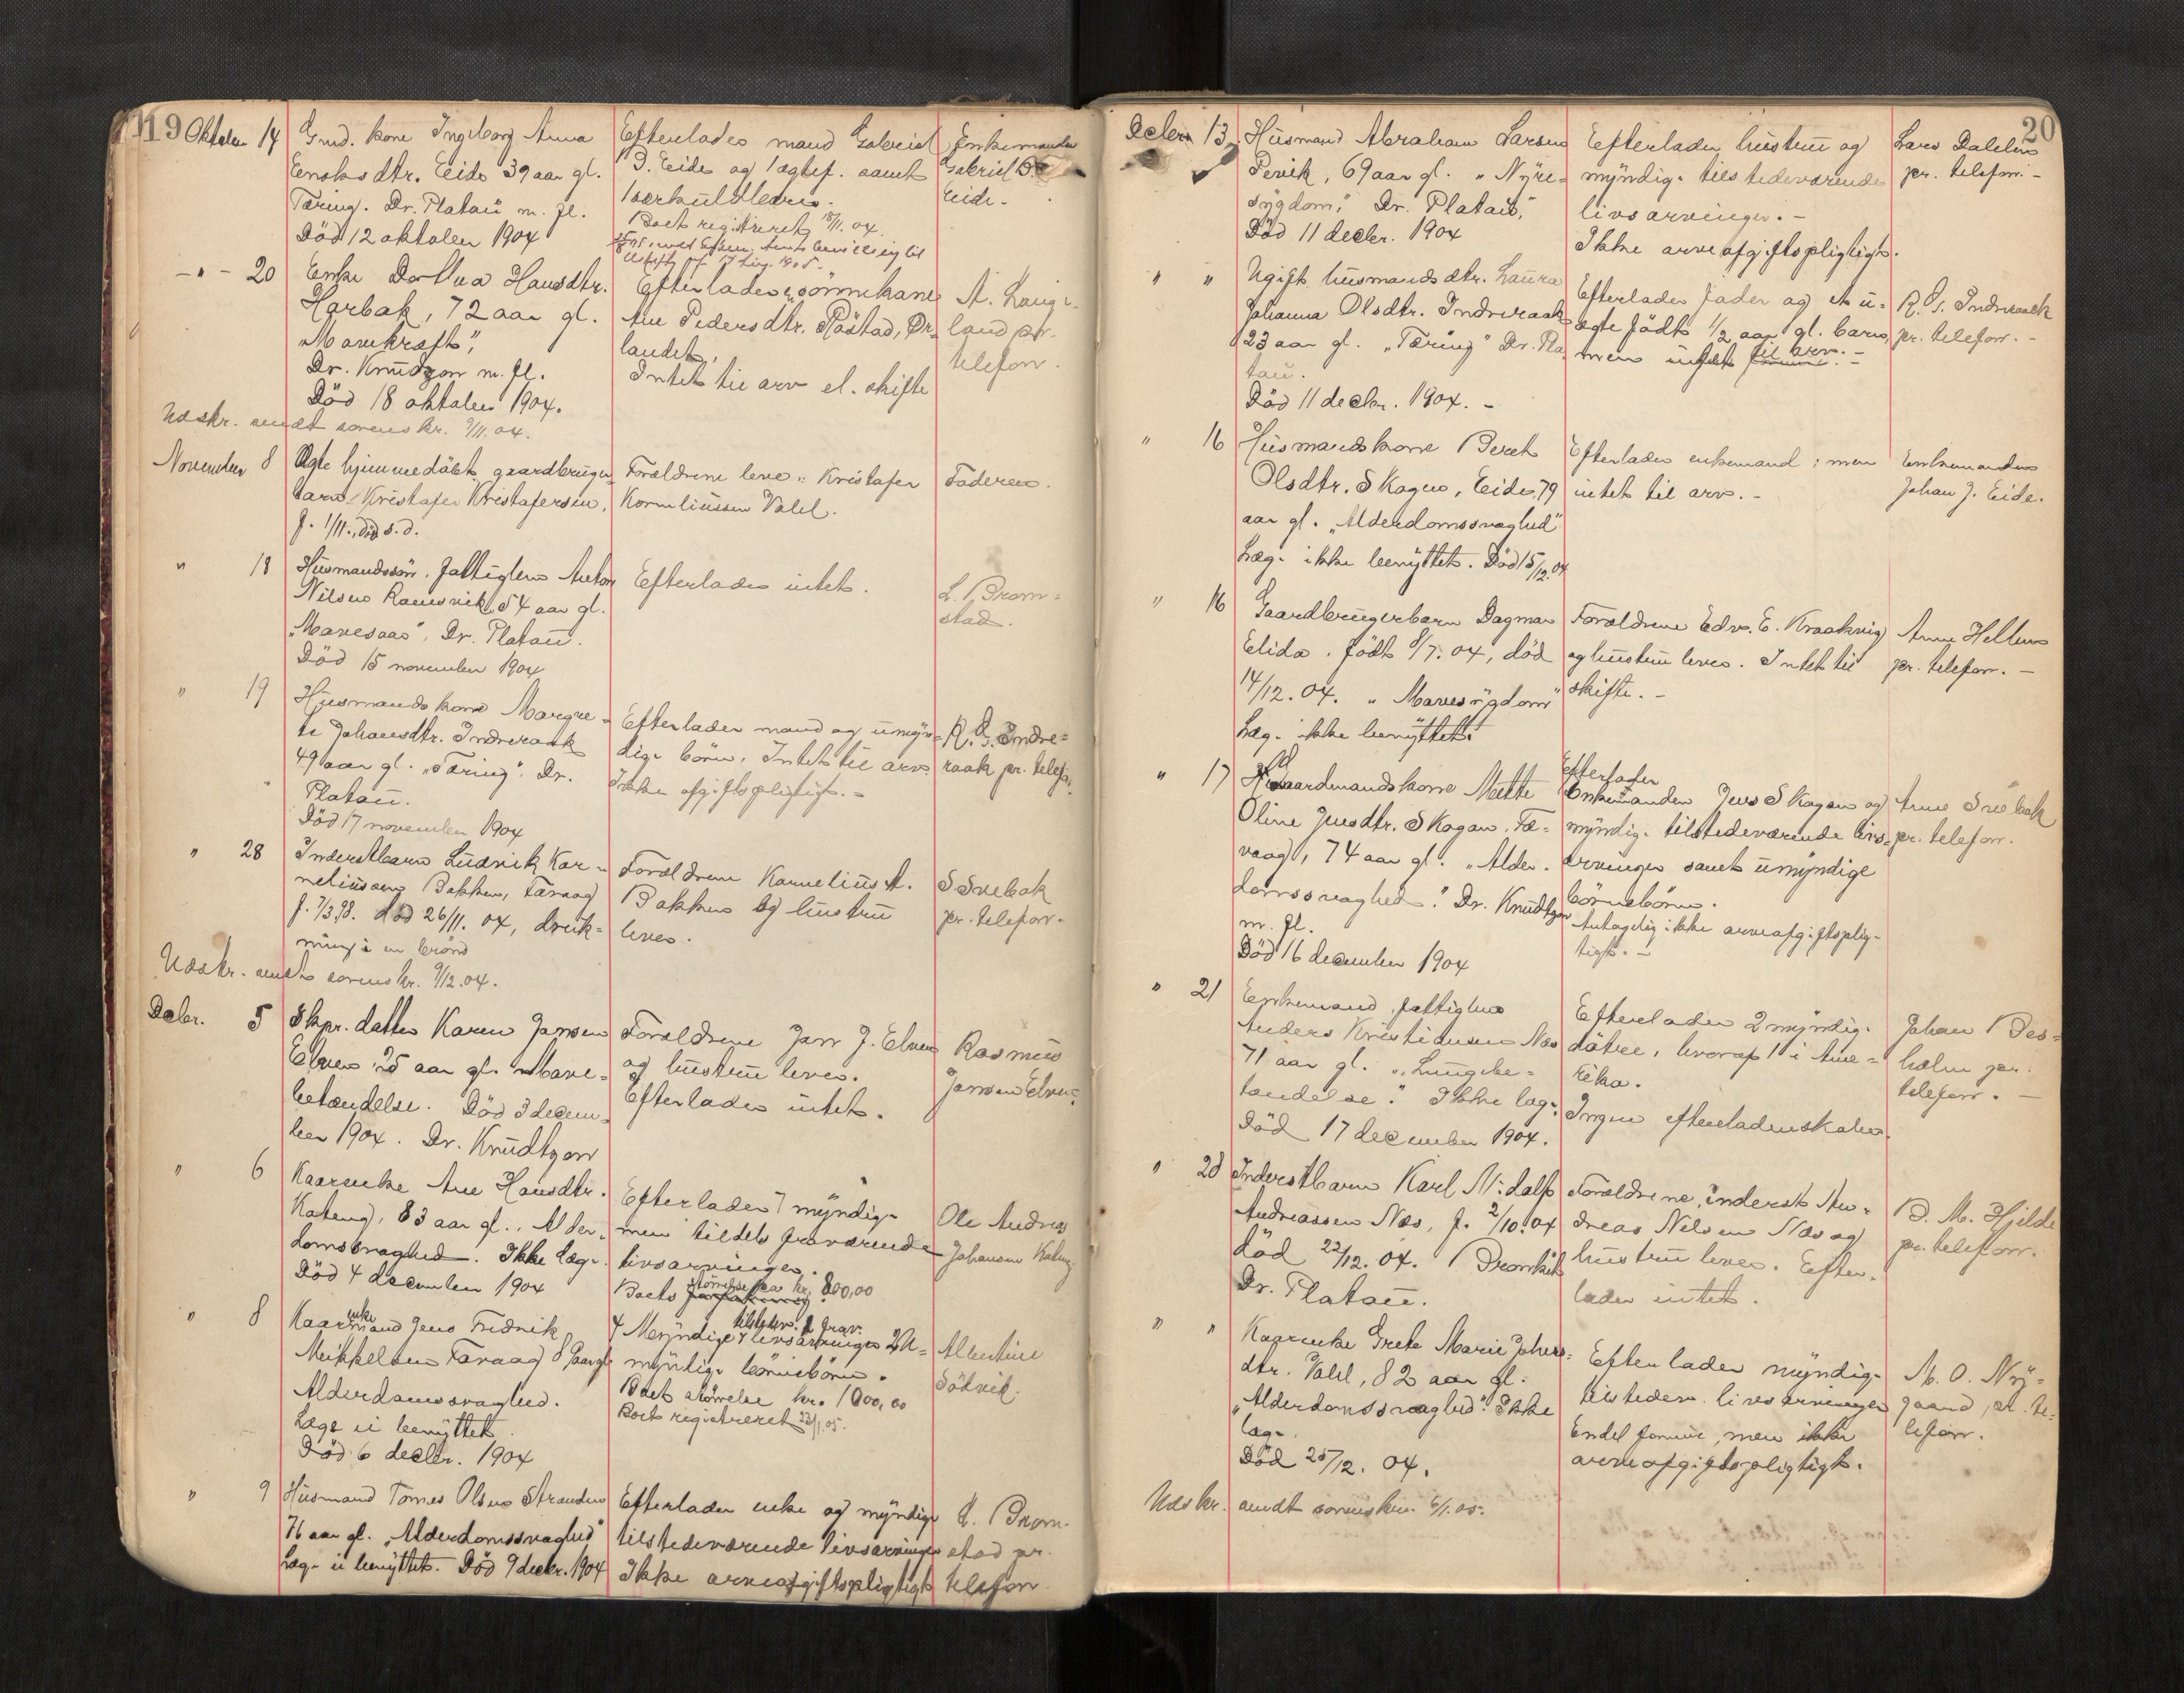 19
Oktober 14
Gmd. kone Ingeborg Anna
Enoksdtr. Eide 39 aar gl.
Tæring. Dr. Platou m. fl.
Död 12 oktober 1904
Efterlades mand Gabriel
D. Eide og 1 ægtef. samt
1 særkuldbarn.
Boet registreret 18/11. 04.
Enkemanden
Gabriel D.
Eide.
- " - 20
Enke Dorthea Hansdtr.
Harbak, 72 aar gl.
"Mavekræft",
Dr. Knudzon m. fl.
Död 18 oktober 1904.
Efterlades sönnekone
Ane Pedersdtr. Röstad, Ör-
landet.
Intet til arv el. skifte
A. Lange-
land pr.
telefon.
Udskr. sendt sorenskr. 9/11. 04.
November 8
Ægte hjemmedöbt gaardbruger
barn Kristofer Kristofersen,
f. 1/11., död s. d.
Forældrene leve: Kristofer
Korneliussen Valel.
Faderen.
" 18
Husmandssön, fattiglem Anton
Nilsen Ramsvik, 54 aar gl.
"Mavesaar", Dr. Platou.
Död 15 november 1904
Efterlader intet.
L. Brom-
stad.
" 19
Husmandskone Margre-
te Johansdtr. Indreraak
49 aar gl. "Tæring", Dr.
Platou.
Död 17 november 1904
Efterlader mand og umyn-
dige börn. Intet til arv.
Ikke afgiftspligtigt. -
R. J. Indre-
raak pr. telefon.
" 28
Inderstbarn Ludvik Kor-
neliussen Bakken, Tarvaag
f. 7/3 98. död 26/11. 04, druk-
ning i en brönd
Forældrene Kornelius A.
Bakken og hustru
lever.
S Svebak
pr. telefon.
Udskr. sendt sorenskr. 9/12. 04.
Decbr. 5
Skpr. datter Karen Jansen
Elven 25 aar gl. Mave-
betændelse. Död 3 decem-
ber 1904. Dr. Knudtzon
Forældrene Jan J. Elven
og hustru lever.
Efterlader intet.
Rasmus
Jansen Elven.
" 6
Kaarenke Ane Hansdtr.
Kateng, 83 aar gl. Alder-
domssvaghed. Ikke læge.
Död 4 december 1904
Efterlader 7 myndige
men tildels fraværende
livsarvinger.
Boets störrelse kr. 800,00
Ole Andreas
Johansen Kateng
" 8
Kaarenkemand Jens Fredrik
Mikkelsen Tarvaag 8 aar gl
Alderdomssvaghed.
Læge ei benyttet.
Död 6 decbr. 1904
4 Myndige livsarvinger
myndige börnebörn.
Boets störrelse kr. 1000,00
Boet registreret 23/1. 05.
Albertine
Södvik
" 9
Husmand Tomes Olsen Stranden
76 aar gl. "Alderdomssvaghed"
Læge ei benyttet. Död 9 decbr. 1904
Efterlader enke og myndige
tilstedeværende livsarvinger
Ikke arveafgiftspligtigt
L. Brom-
stad pr.
telefon.
20
Decbr. 13
Husmand Abraham Larsen
Pevik, 69 aar gl. "Nyre-
sygdom," Dr. Platou,
Död 11 decbr. 1904
Efterlader hustru og
myndige tilstedeværende
livsarvinger. -
Ikke arveafgiftspligtigt.
Lars Dahlen
pr. telefon. -
" "
Ugift husmandsdtr. Laura
Johanna Olsdtr. Indreraak
23 aar gl. "Tæring" Dr. Pla
tou.
Död 11 decbr. 1904. -
Efterlader fader og et u-
ægte födt 1/2 aar gl. barn,
men intet til arv. -
R. J. Indreraak
pr. telefon. -
" 16
Husmandskone Beret
Olsdtr. Skagen, Eide, 79
aar gl. "Alderdomssvaghed"
Læge ikke benyttet. Död 15/12.04
Efterlader enkemand; men
intet til arv. -
Enkemanden
Johan J. Eide.
" 16
Gaardbrugerbarn Dagmar
Elida. födt 8/7. 04, död
14/12. 04. "Mavesygdom"
Læge ikke benyttet.
Forældrene Edv. E. Kraakvig
og hustru lever. Intet til
skifte. -
Arne Hellem
pr. telefon. -
" 17
Gaardmandskone Mette
Oline Jensdtr. Skagan. Ta-
vaag, 74 aar gl. "Alder-
domssvaghed". Dr. Knudtzon
m. fl.
Död 16 december 1904
Efterlader
Enkemanden Jens Skagan og
myndige tilstedeværende livs-
arvinger samt umyndige
börnebörn.
Antagelig ikke arveafgiftsplig-
tigt. -
Arne Svebak
pr. telefon.
" 21
Enkemand, fattiglem
Anders Kristiansen Næs
71 aar gl. "Lungebe-
tændelse". Ikke læge.
Död 17 december 1904.
Efterlader 2 myndige
dötre, hvoraf 1 i Ame-
rika.
Ingen efterladenskaber.
Johan Bes-
holm per.
telefon. -
" 28
Inderstbarn Karl Nidolf
Andreassen Næs, f. 2/10. 04
död 22/12. 04. Bronkit
Dr. Platou.
Forældrene, inderst An-
dreas Nilsen Næs og
hustru lever. Efter-
lader intet.
B. M. Hjelde
pr. telefon.
" "
Kaarenke Grete Marie Johns-
dtr. Valel, 82 aar gl.
"Alderdomssvaghed". Ikke
læge.
Död 25/12. 04.
Efterlader myndige
tilstedev. livsarvinger
Endel formue, men ikke
arveafgiftspligtigt.
M. O. Ny-
gaard, pr. te-
lefon.
Udskr. sendt sorenskr. 6/1. 05.